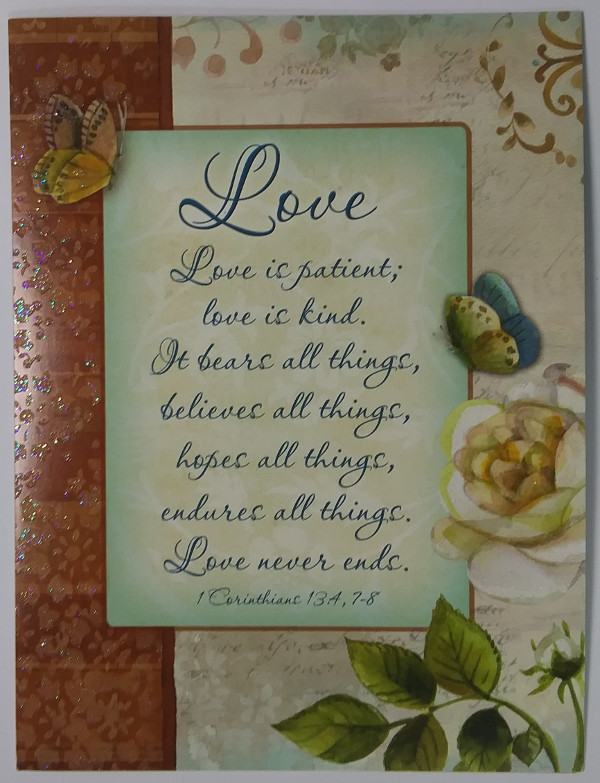 Love
Love is patient;
love is kind.
It bears all things,
believes all things,
hopes all things,
endures all things.
Love never ends.
1 Corinthians 13:4, 7-8